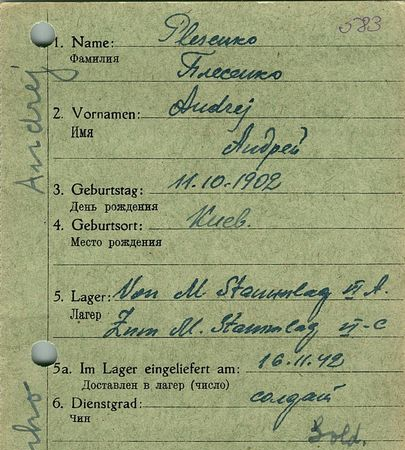 583
1. Name: Plesenko
Фамилия Плесенко
2. Vornamen: Andrej
Имя Андрей
3. Geburtstag: 11.10-1902
День рождения
4. Geburtsort: Киев.
Место рождения
5. Lager: Von M. Stammlag VI A.
Лагер Zum M. Stammlag VI-C
5a. Im Lager eingeliefert am: 16.11.42
Доставлен в лагер (число)
6. Dienstgrad: солдат
Чин Sold.
Andrej